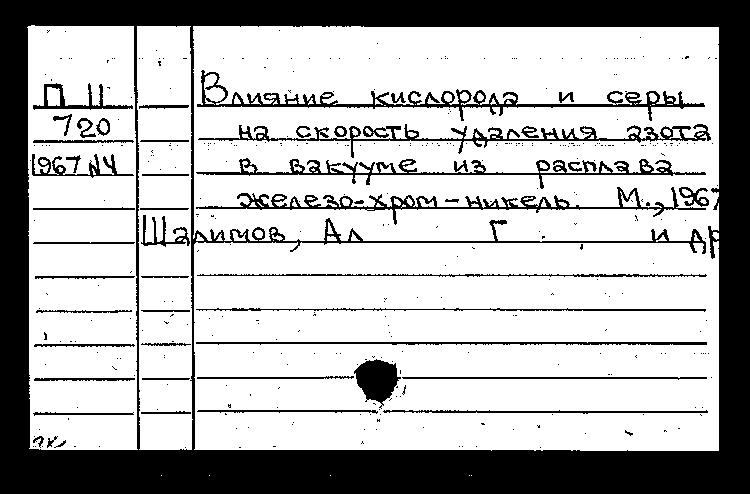 П II
720
1967 N4
Влияние кислорода и серы
на скорость удаления азота
в вакууме из расплава
железо-хром-никель. М., 1967
Шалимов, Ал Г. и др